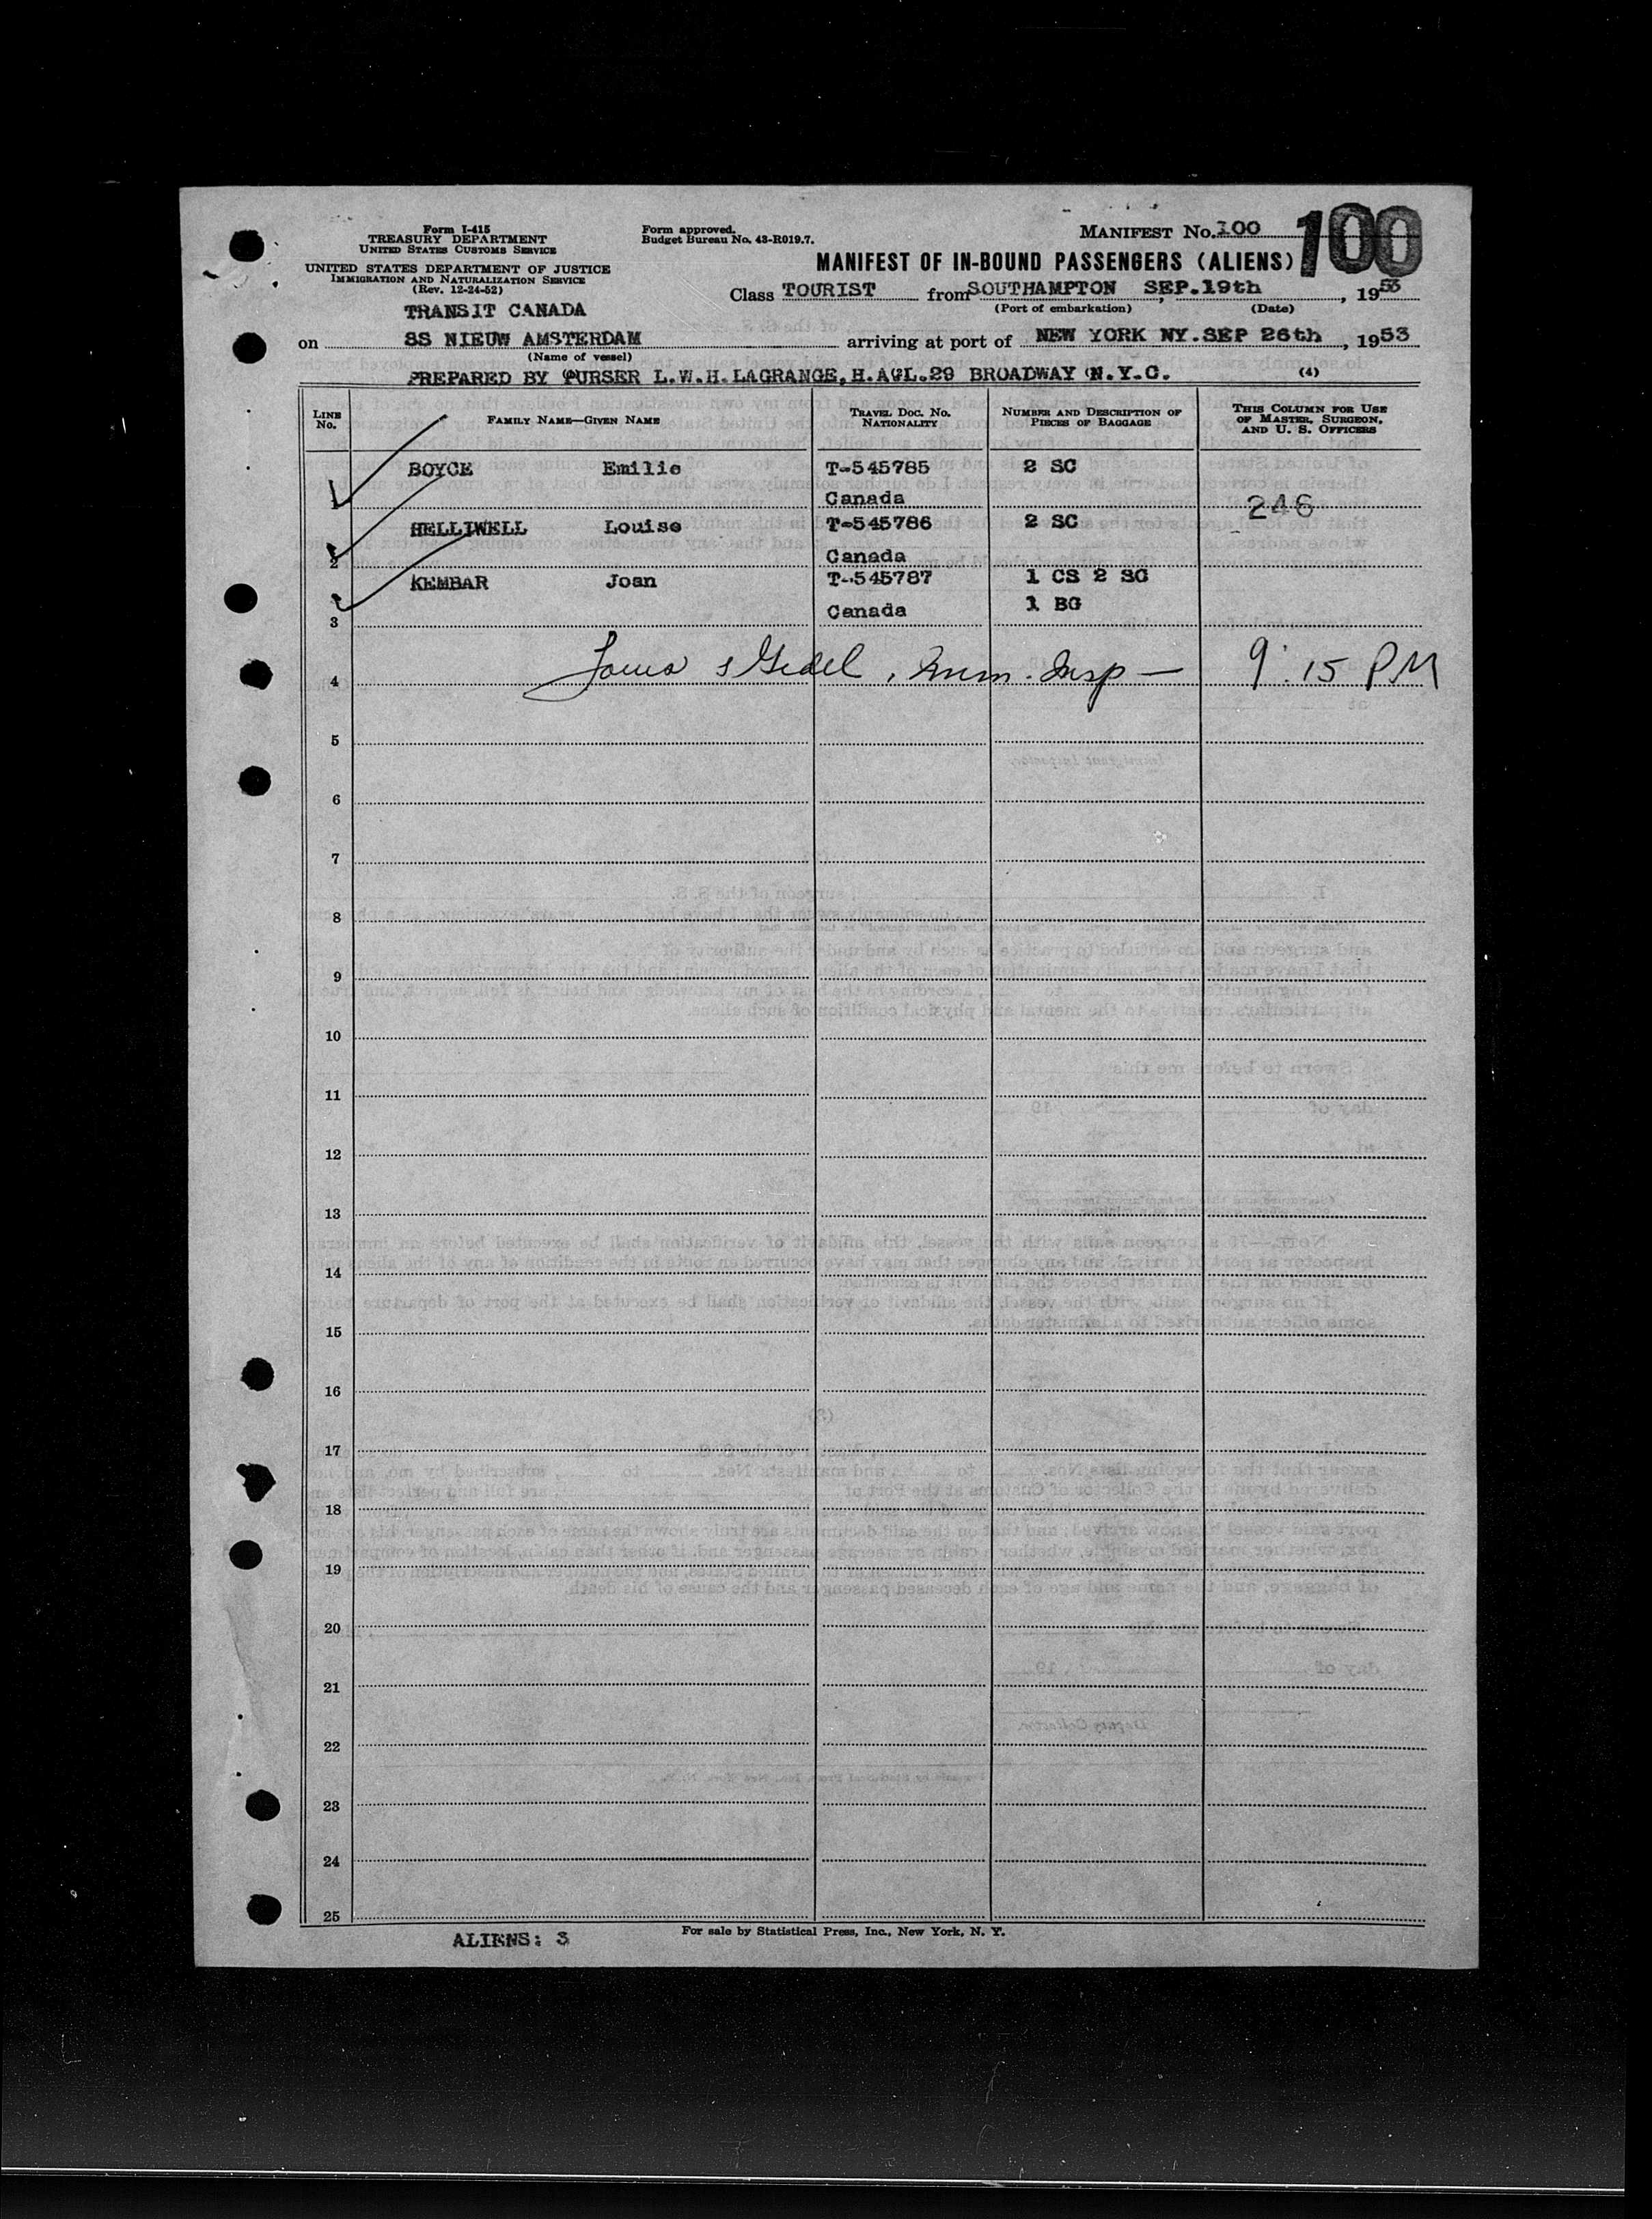 Form I-415
TREASURY DEPARTMENT
UNITED STATES CUSTOMS SERVICE
UNITED STATES DEPARTMENT OF JUSTICE
IMMIGRATION AND NATURALIZATION SERVICE
(Rev. 12-24-52)
Form approved.
Budget Bureau No. 43-R019.7.
MANIFEST NO. 100
100
MANIFEST OF IN-BOUND PASSENGERS (ALIENS)
Class TOURIST from SOUTHAMPTON SEP.19th, 1953
(Port of embarkation) (Date)
TRANSIT CANADA
on SS NIEUW AMSTERDAM arriving at port of NEW YORK NY. SEP 26th, 1953
(Name of vessel)
PREPARED BY PURSER L.W.H. LAGRANGE, H.A@L.29 BROADWAY N.Y.C. (4)
LINE No. FAMILY NAME—GIVEN NAME TRAVEL DOC. NO. NATIONALITY NUMBER AND DESCRIPTION OF PIECES OF BAGGAGE THIS COLUMN FOR USE OF MASTER, SURGEON, AND U. S. OFFICERS
BOYCE Emilie T-545785 2 SC
1 Canada 246
HELLIWELL Louise T-545786 2 SC
2 Canada
KEMBAR Joan T-545787 1 CS 2 SC
3 Canada 1 BG
4 Imm. Insp — 9:15 PM
5
6
7
8
9
10
11
12
13
14
15
16
17
18
19
20
21
22
23
24
25
ALIENS: 3
For sale by Statistical Press, Inc., New York, N. Y.